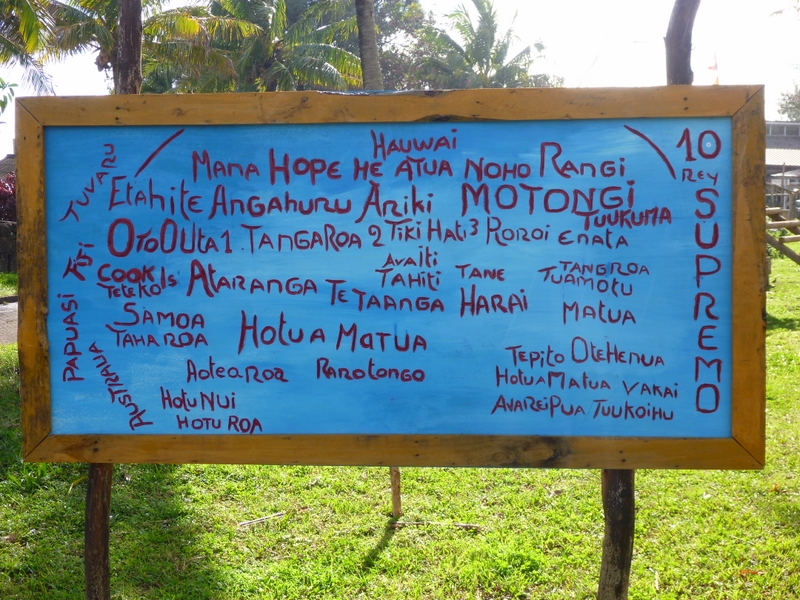 Hauwai
Mama Hope He Atua Noho Rangi
Etahite Angahuru Ariki MOTONGI
TUUKUMA
OTO OUta 1 TANGAROA 2 Tiki Hati 3 Roroi Enata
Avaiti
COOK Is Ataranga Te Taanga Harai
Teteko
Tahiti Tane
Tangroa
Tuamotu
Matua
SAMOA
TAHAROA
Hotu a Matua
Aotearoa Rarotongo
Hotu Nui
Hotu Roa
Tepito OteHenua
HotuaMatua Vakai
AvaReiPua Tuukoihu
TUVARU
FIJI
PAPUASI
AUSTRALIA
10
REY
SUPREMO